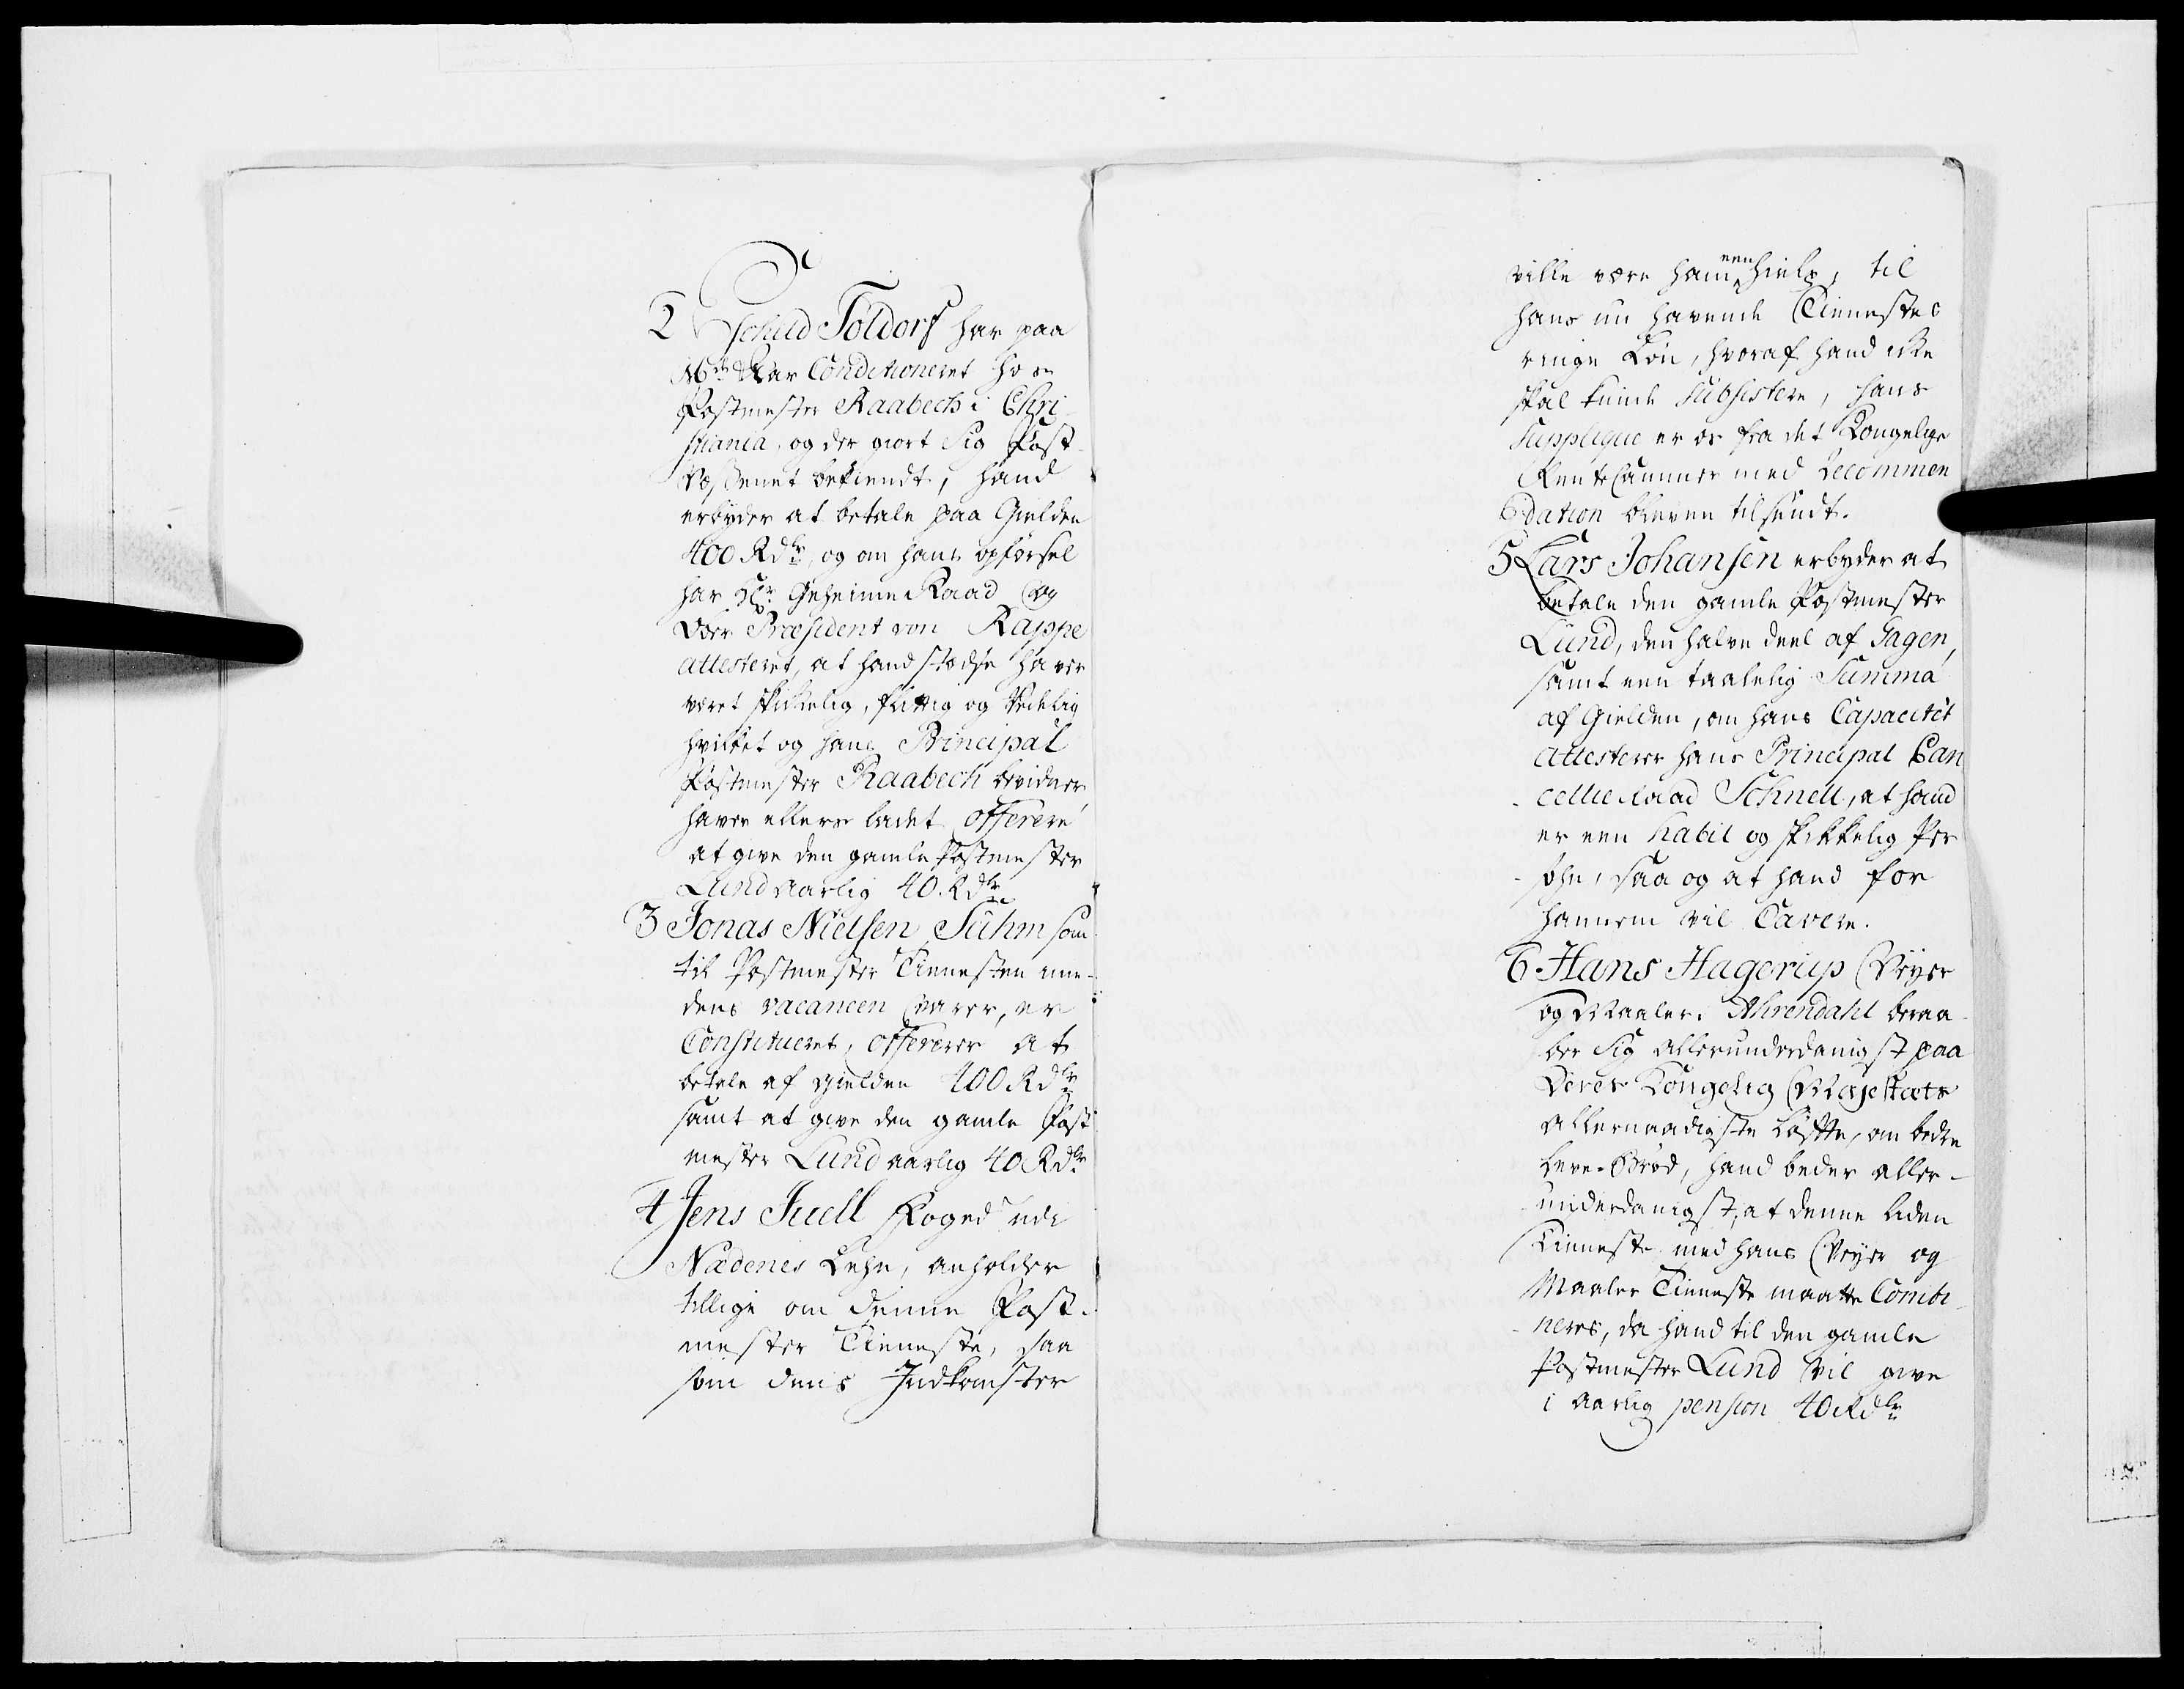 2 Schild Toldorf har paa
16de Aar Conditioneret hos
Postmester Raabech i Chri-
stiania, og der giort Sig Post-
Væssenet bekiendt, hand
erbyder at betale paa Gielden
400 Rdlr, og om hans opførsel
har Hr Geheime Raad og
Vice Præsident von Kappe
attesteret, at hand stedse haver
været skikkelig, flittig og Redelig
hvilket og hans Principal
Postmester Raabech bevidner
haver ellers ladet offerere
at give den gamle Postmester
Lund aarlig 40 Rdlr
3 Jonas Nielsen Suhm som
til Postmester Tienesten imi-
dens vacancen varer, er
Constitueret, offererer at
betale af gielden 400 Rdlr
samt at give den gamle Post
mester Lund aarlig 40 Rdlr
4 Jens Juell Foged udi
Nædenes Lehn, anholder
tillige om denne Post-
mester Tieneste, saa
som dens Indkomster
ville være ham een hielp, til
hans nu havende Tienestes
ringe Løn, hvoraf hand ikke
skal kunde subsistere, hans
Supplique er os fra det Kongelige
Rente Cammer med Recommen
dation bleven tilsendt.
5 Lars Johansen erbyder at
betale den gamle Postmester
Lund, den halve deel af Gagen,
samt een taalelig Summa
af Gielden, om hans Capacitet
attesterer hans Principal Can
cellie Raad Schnell, at hand
er een habil og skikkelig Per
sohn, saa og at hand for
hannem vil Cavere.
6 Hans Hagerup Veyer
og Maaler i Ahrendahl beraa-
ber Sig allerunderdanigst paa
Deres Kongelig Majestæts
Allernaadigste Løfte, om bedre
Leve-Brød, hand beder aller-
underdanigst, at denne liden
Tieneste med hans Veyer og
Maaler Tieneste maatte Combi-
neres, da hand til den gamle
Postmester Lund vil give
i aarlig pension 40 Rdlr